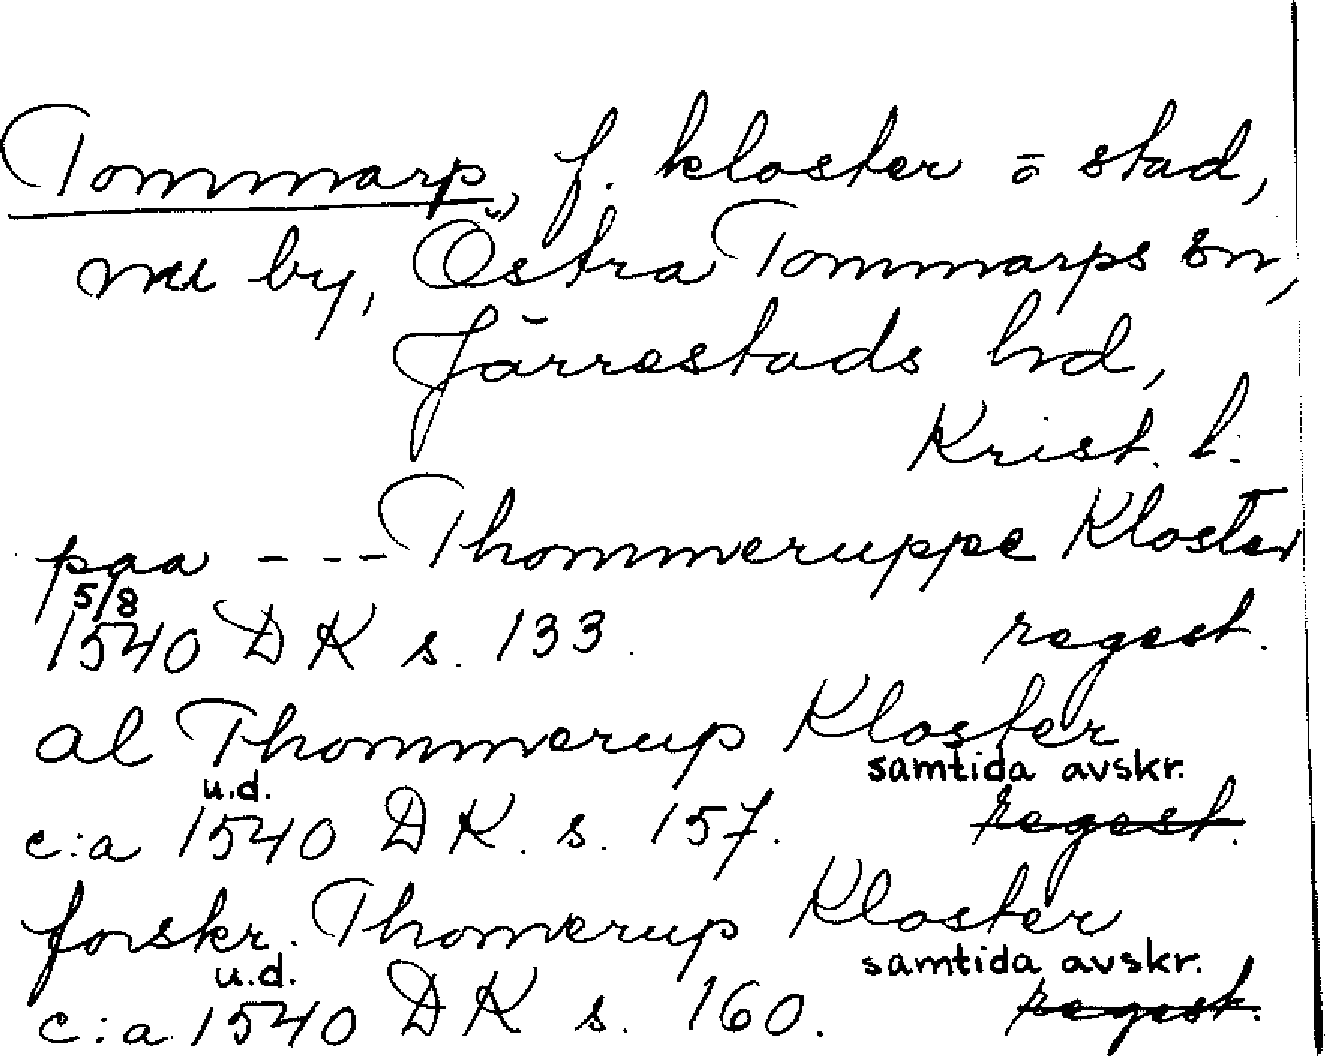 Tommarp, f. kloster o stad,
nu by, Östra Tommarps sn,
Järrestads hd,
Krist. l.
paa --- Thommeruppe Kloster
5/8
1540 DK s. 133. regest.
al Thommerup Kloster
u.d. samtida avskr.
c:a 1540 DK. s. 157. regest.
forskr. Thomerup Kloster
u.d. samtida avskr.
c:a 1540 DK s. 160. regest.